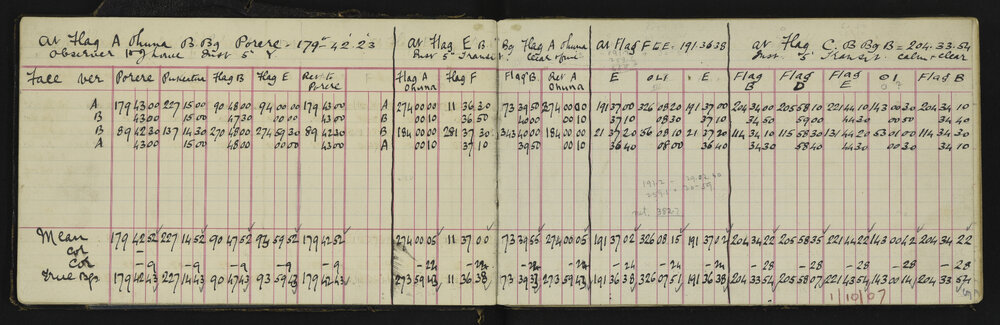 At Flag A Ohura B Bg Porere - 179° 42' 23 At Flag E B Bg Flag A Ohura At Flag F & E = 191 36 38 At Flag C. B Bg B = 204.33.54
Observer Inst 5" Inst 5" Transit Clear & fine Inst 5" Transit. calm & clear
Face ver Porere Puketutu Flag B Flag E Ret to Porere Flag A Ohura Flag F Flag B. Ret A Ohura E E Flag B Flag D Flag E Flag B
A 179 43 00 227 15 00 90 48 00 94 00 00 179 43 00 A 274 00 00 11 36 30 73 39 50 274 00 10 191 37 00 326 08 20 191 37 00 204 34 00 205 58 10 221 44 10 143 00 30 204 34 10
B 43 00 15 00 47 30 00 00 43 00 B 00 10 36 50 40 00 00 10 37 10 08 30 37 10 34 50 59 00 44 30 00 50 34 40
B 89 42 30 137 14 30 270 48 00 274 59 30 89 42 30 B 184 00 00 281 37 30 343 40 00 184 00 00 21 37 20 56 08 10 21 37 20 114 34 10 115 58 30 131 44 20 53 01 00 114 34 30
A 43 00 15 00 48 00 00 00 43 00 A 00 10 37 10 39 50 00 10 36 40 08 00 36 40 34 30 58 40 44 30 00 30 34 10
Mean 179 42 52 227 14 52 90 47 52 93 59 52 179 42 52 274 00 05 11 37 00 73 39 55 274 00 05 191 37 02 326 08 15 191 37 02 204 34 22 205 58 35 221 44 22 143 00 42 204 34 22
Cor
Cor - 9 - 9 - 9 - 9 - 9 - 22 - 22 - 22 - 22 - 24 - 24 - 24 - 28 - 28 - 28 - 28 - 28
True Bgs 179 42 43 227 14 43 90 47 43 93 59 43 179 42 43 273 59 43 11 36 38 73 39 33 273 59 43 191 36 38 326 07 51 191 36 38 204 33 54 205 58 07 221 43 54 143 00 14 204 33 54
1/10/07